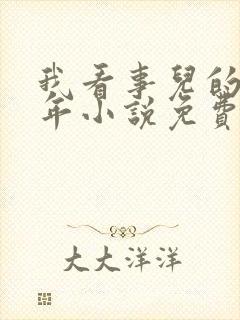 我看事兒的
年小說免費
大大洋洋